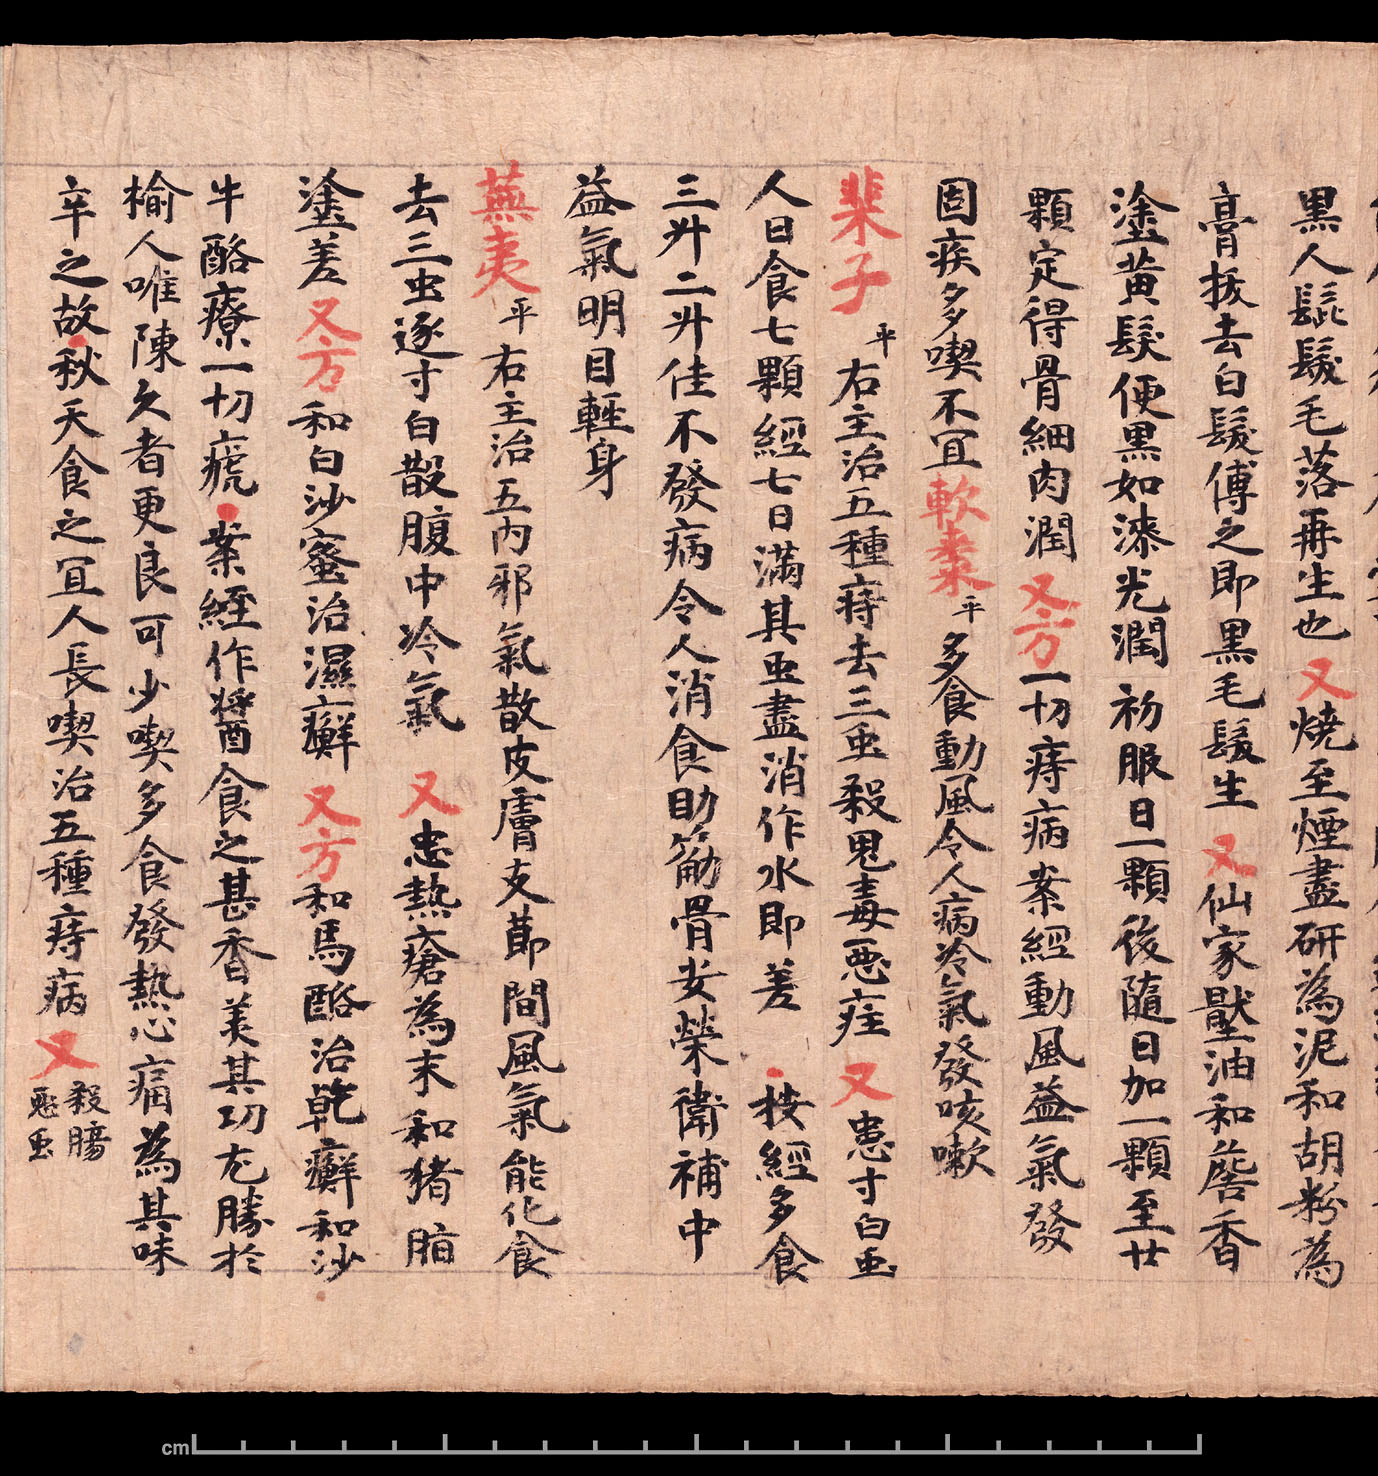 黑人髭鬚毛落再生也又燒至煙盡研為泥和胡粉為
膏拔去白髮傅之即黑毛髮生又仙家壓油和詹香
塗黃髮便黑如漆光潤初服日一顆後隨日加一顆至廿
顆定得骨細肉潤又方一切痔病案經動風益氣發
固疾多喫不宜軟棗平多食動風令人病冷氣發咳嗽
棐子平右主治五種痔去三虫殺鬼毒惡疰又患寸白虫
人日食七顆經七日滿其虫盡消作水即差按經多食
三升二升佳不發病令人消食助筋骨安榮衛補中
益氣明目輕身
蕪荑平右主治五內邪氣散皮膚支節間風氣能化食
去三虫逐寸白散腹中冷氣又患熱瘡為末和猪脂
塗差又方和白沙蜜治濕癬又方和馬酪治乾癬和沙
牛酪療一切瘡案經作醬食之甚香美其功尤勝於
榆人唯陳久者更良可少喫多食發熱心痛為其味
辛之故秋天食之宜人長喫治五種痔病又殺腸
惡虫